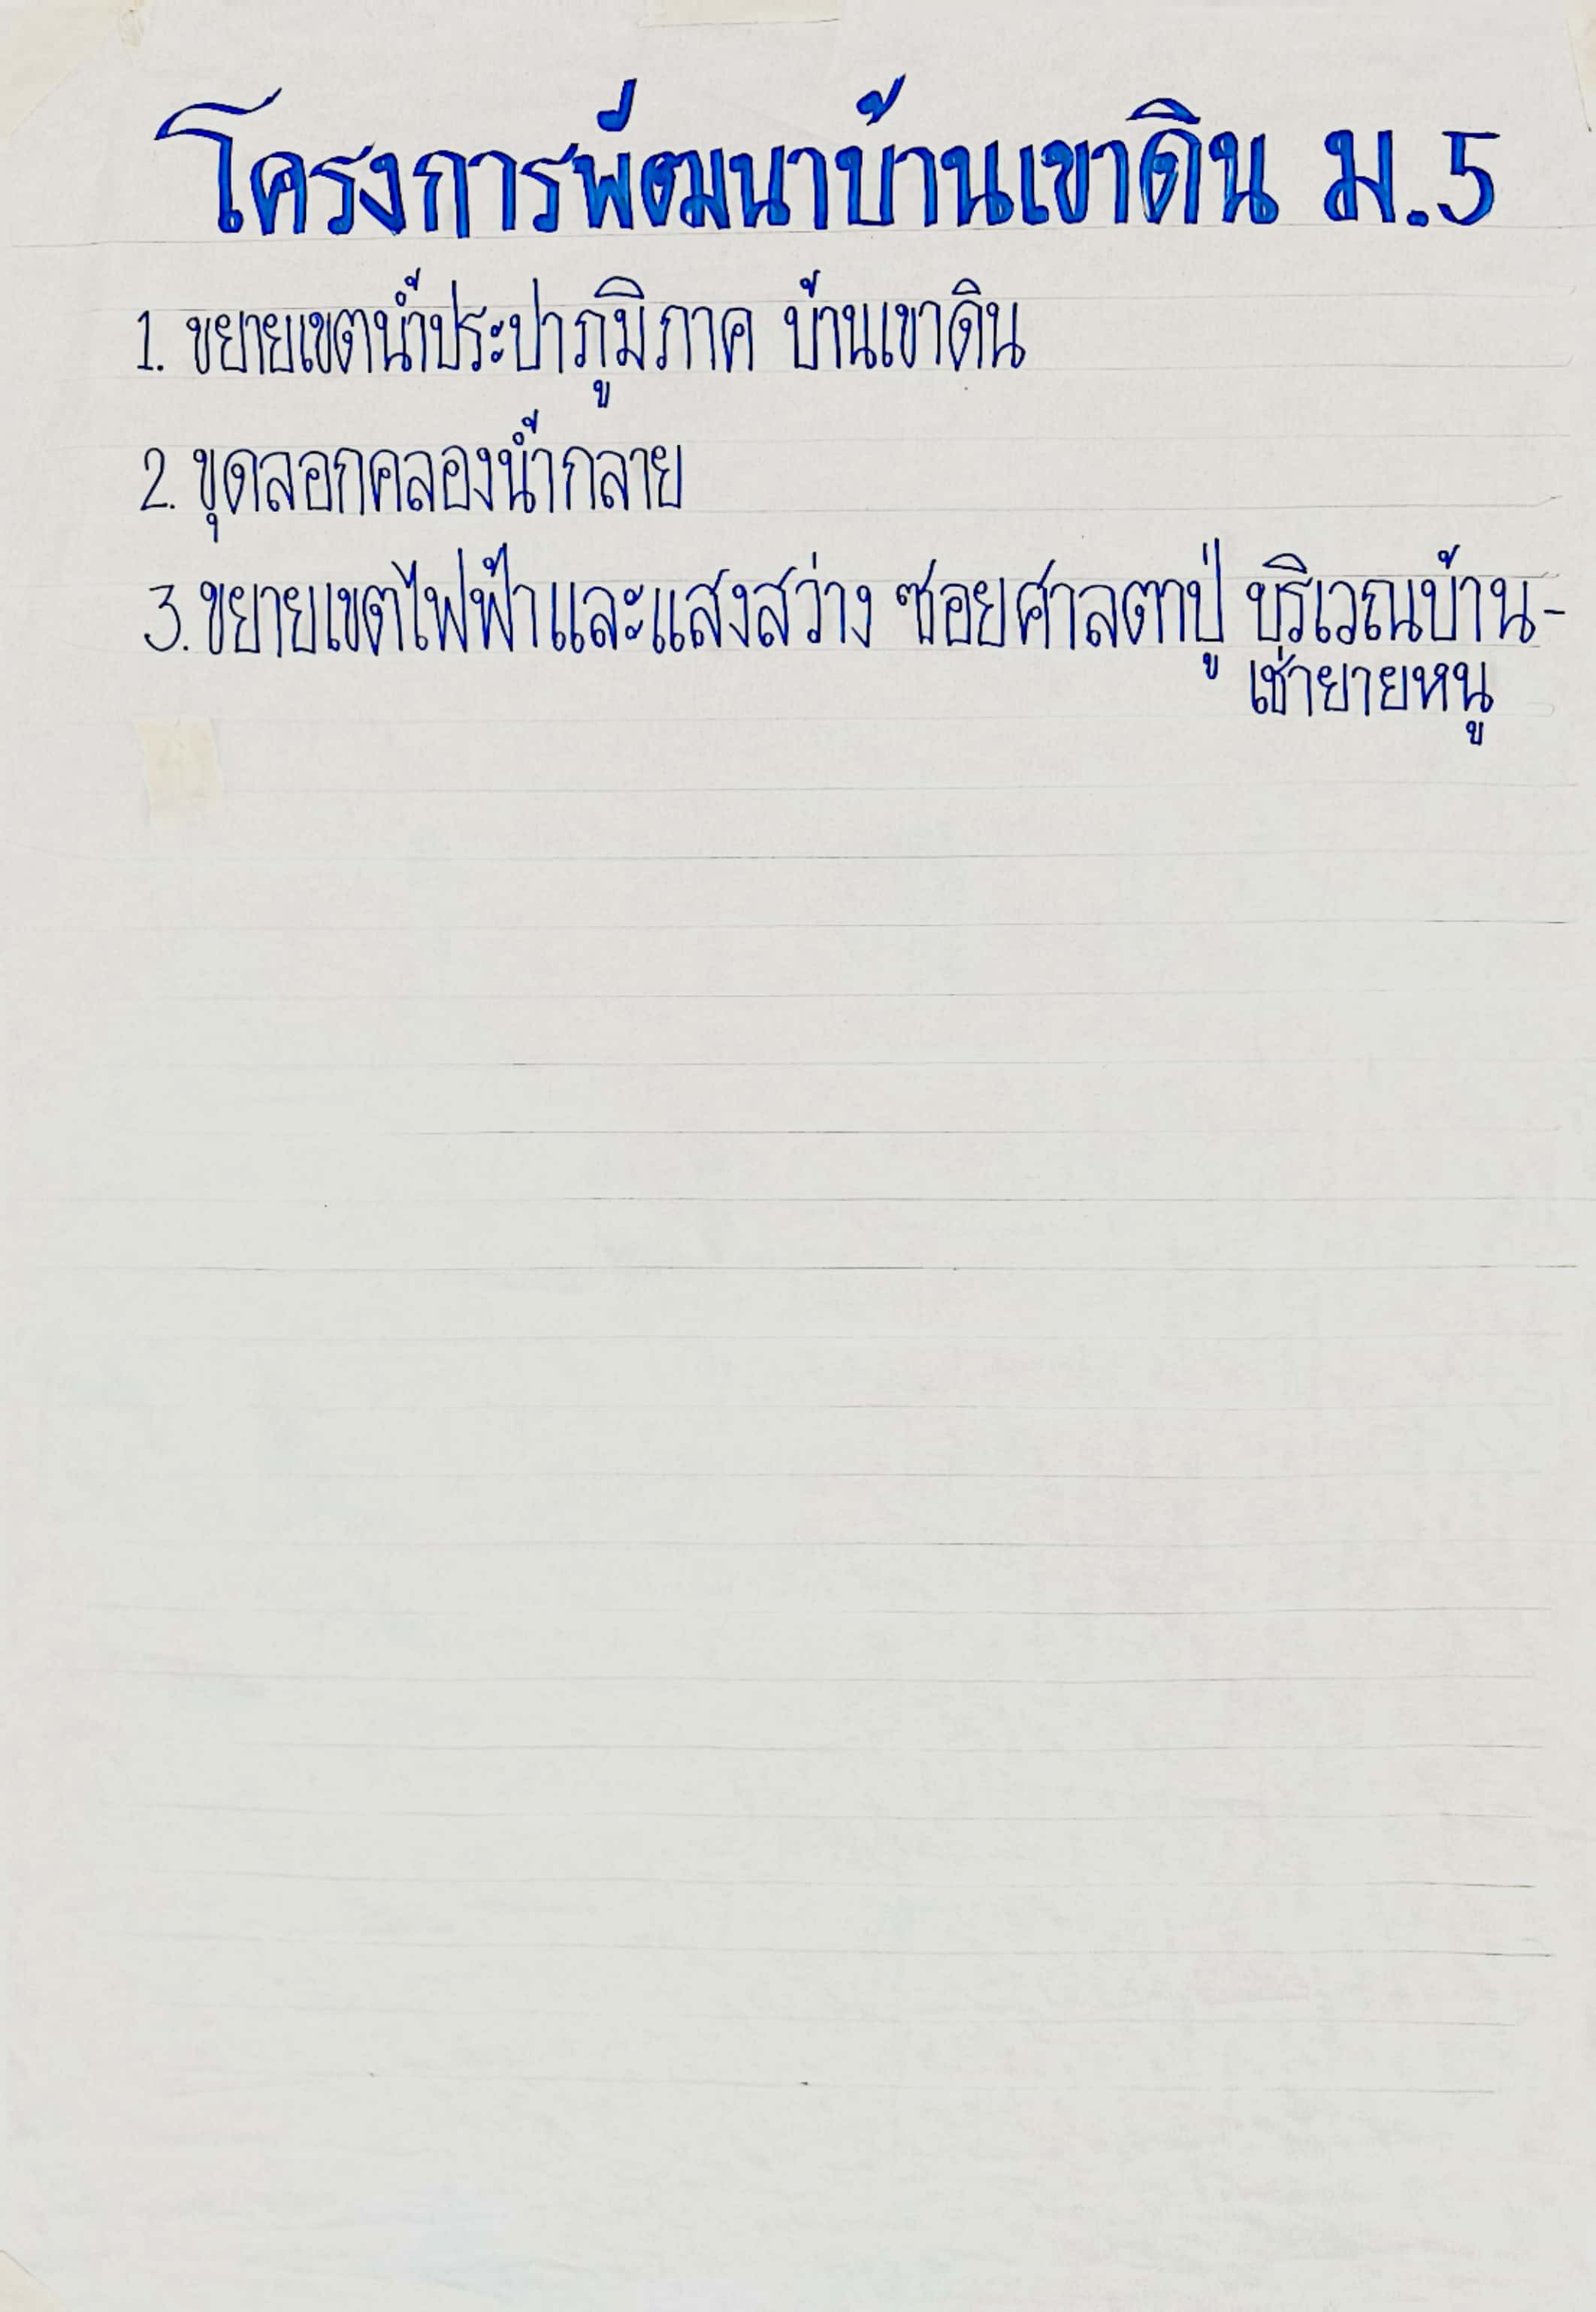 โครงการพัฒนาบ้านเขาดิน ม.5
1. ขยายเขตน้ำประปาภูมิภาค บ้านเขาดิน
2. ขุดลอกคลองน้ำกลาย
3. ขยายเขตไฟฟ้าและแสงสว่าง ซอยศาลตาปู่ บริเวณบ้าน-
เช่ายายหนู